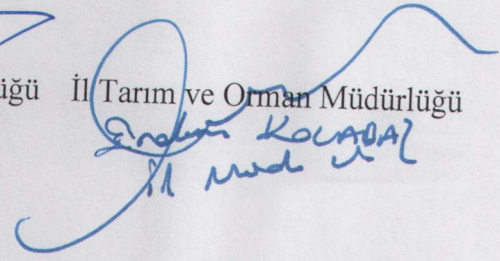 üğü İl Tarım ve Orman Müdürlüğü
KOCABAŞ
İl Müdürü